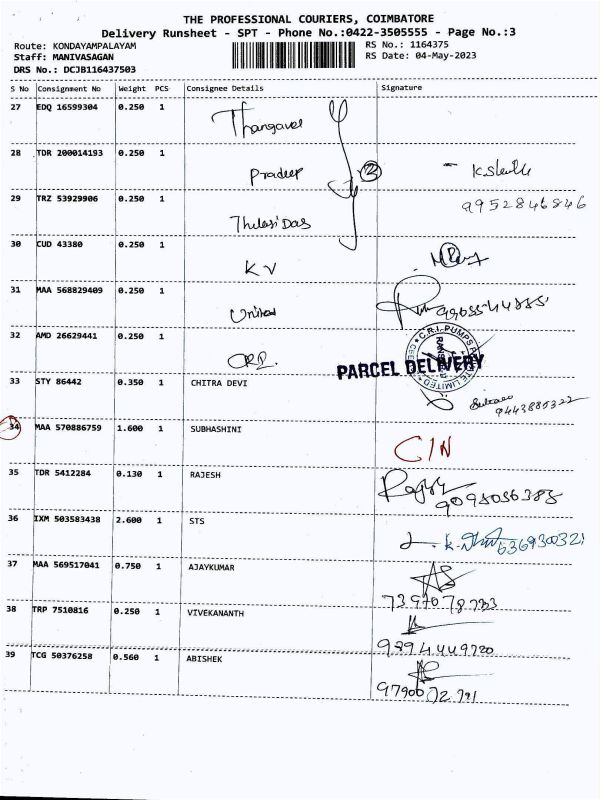 THE PROFESSIONAL COURIERS, COIMBATORE
Delivery Runsheet - SPT - Phone No.:0422-3505555 - Page No.:3
Route: KONDAYAMPALAYAM
RS No.: 1164375
Staff: MANIVASAGAN
RS Date: 04-May-2023
DRS No.: DCJB116437503
S No Consignment No Weight PCS Consignee Details Signature
27 EDQ 16599304 0.250 1 Thangavel
28 TDR 200014193 0.250 1 Pradeep 2
29 TRZ 53929906 0.250 1 Thulasi Das 9952846846
30 CUD 43380 0.250 1 KV
31 MAA 568829409 0.250 1 United
32 AMD 26629441 0.250 1
C.R.I. PUMPS
PARCEL DELIVERY
33 STY 86442 0.350 1 CHITRA DEVI 9443885322
34 MAA 570886759 1.600 1 SUBHASHINI C/N
35 TDR 5412284 0.130 1 RAJESH
36 IXM 503583438 2.600 1 STS
37 MAA 569517041 0.750 1 AJAYKUMAR
38 TRP 7510816 0.250 1 VIVEKANANTH 9894449720
39 TCG 50376258 0.560 1 ABISHEK